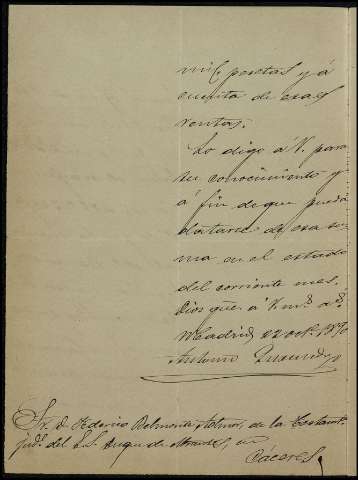 mil pesetas y á
cuenta de esas
rentas.
Lo digo á V. para
su conocimiento y
á fin de que pueda
datarse de esa su-
ma en el estado
del corriente mes.
Dios gue. á V. m.s a.s
Madrid 22 oct. 1890
Antonio
Sr. D. Federico Belmonte, de la Testament.
jud.l del S.S. Duque de en
Cáceres